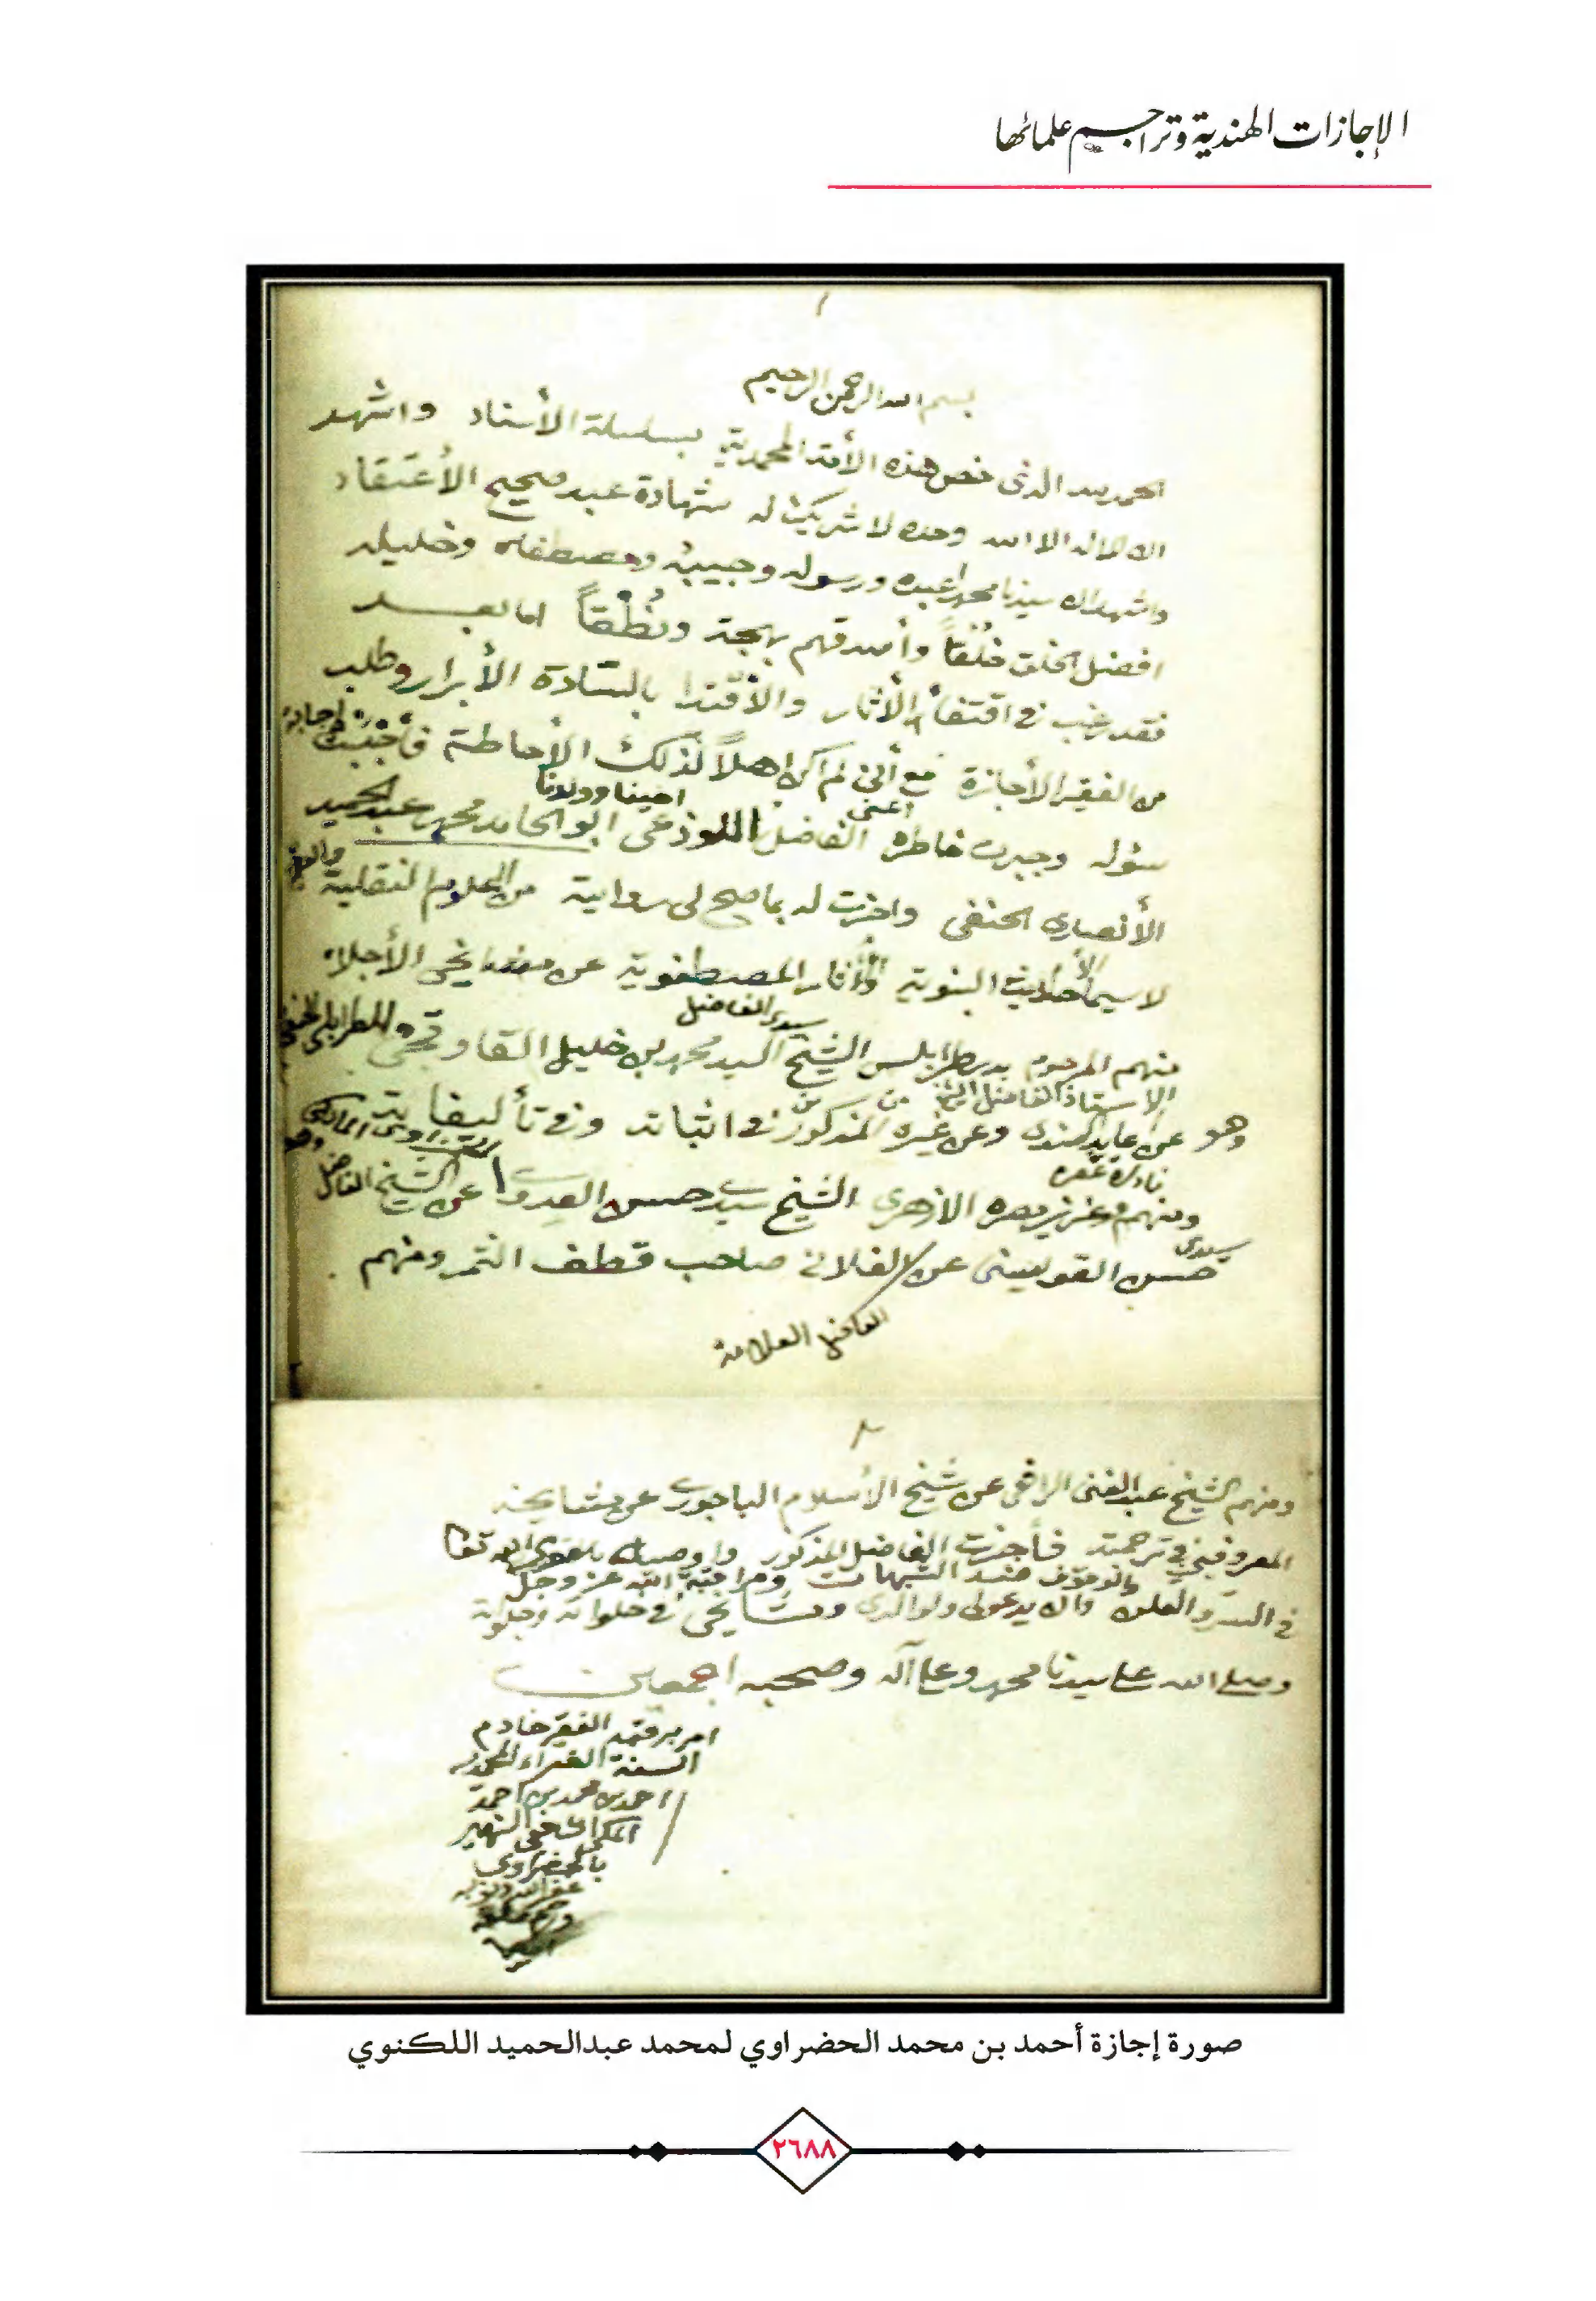 الإجازات الهندية وتراجيم علمائها
١
بسم الله الرحمن الرحيم
الحمد لله الذى خص هذه الأمة المحمدية بسلسلة الأسناد واشهد
ان لا اله الا الله وحده لا شريك له شهادة عبد صحيح الأعتقاد
واشهد ان سيدنا محمدا عبده ورسوله وحبيبه ومصطفاه وخليله
افضل الخلق خُلُقاً وأصدقهم بهجة ونُطْقاً اما بعد
فقد رغب فى اقتفاء الأثار والأقتدا بالسّادة الأبرار وطلب
من الفقير الأجازة مع أنى لم اكن اهلاً لذلك الأحاطة فأجبت
سؤله وجبرت خاطره اعنى الفاضل اللوذعى ابو الحامد محمد عبد الحميد
الأنصارى الحنفى واجزت له بما صح لى رواية من العلوم النقلية
لا سيما الأحاديث النبوية والأثار المصطفوية عن مشايخى الأجلاء
منهم المرحوم بدر طرابلس الشيخ سيدى الفاضل السيد محمد بن خليل القاوقجى
الاستاذ الفاضل الشيخ
وهو عن عابد السندى وعن غيره من المذكورين فى اثباته وفى تأليفاته
ومنهم عزيز مصره الازهرى الشيخ سيدى حسن العدوى عن الشيخ الفاضل
سيدى حسن القويسنى عن الفلانى صاحب قطف الثمر ومنهم
الفاضل العلامة
٢
ومنهم الشيخ عبد الغنى الرافعى عن شيخ الأسلام الباجورى عن مشايخه
المعروفين فى ترجمته فأجزت الفاضل المذكور واوصيه بتقوى الله تعا
والوقوف عند الشبهات ومراقبة الله عز وجل
فى السرّ والعلن وان يدعو لى ولوالدى ومشايخى فى خلواته وجلواته
وصلى الله على سيدنا محمد وعلى آله وصحبه اجمعين
امر برقمه الفقير خادم
السنة الغراء المحمدية
احمد بن محمد بن احمد
المكى الشافعى الشهير
بالحضراوى
صورة إجازة أحمد بن محمد الحضراوي لمحمد عبدالحميد اللكنوي
٢٦٨٨